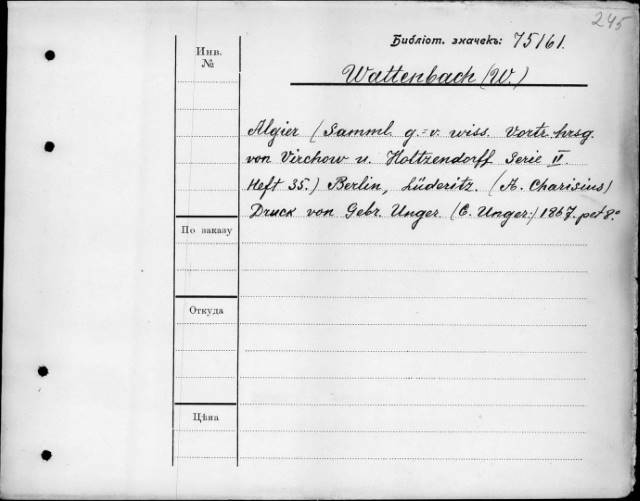 245
Библіот. значекъ: 75161.
Инв.
№
Wattenbach (W.)
Algier (Samml. g.-v. wiss. Vortr. hrsg.
von Virchow u. Holtzendorff Serie II.
Heft 35.) Berlin, Lüderitz. (A. Charisius)
Druck von Gebr. Unger. (C. Unger:) 1867. pet 8.º
По заказу
Откуда
Цѣна